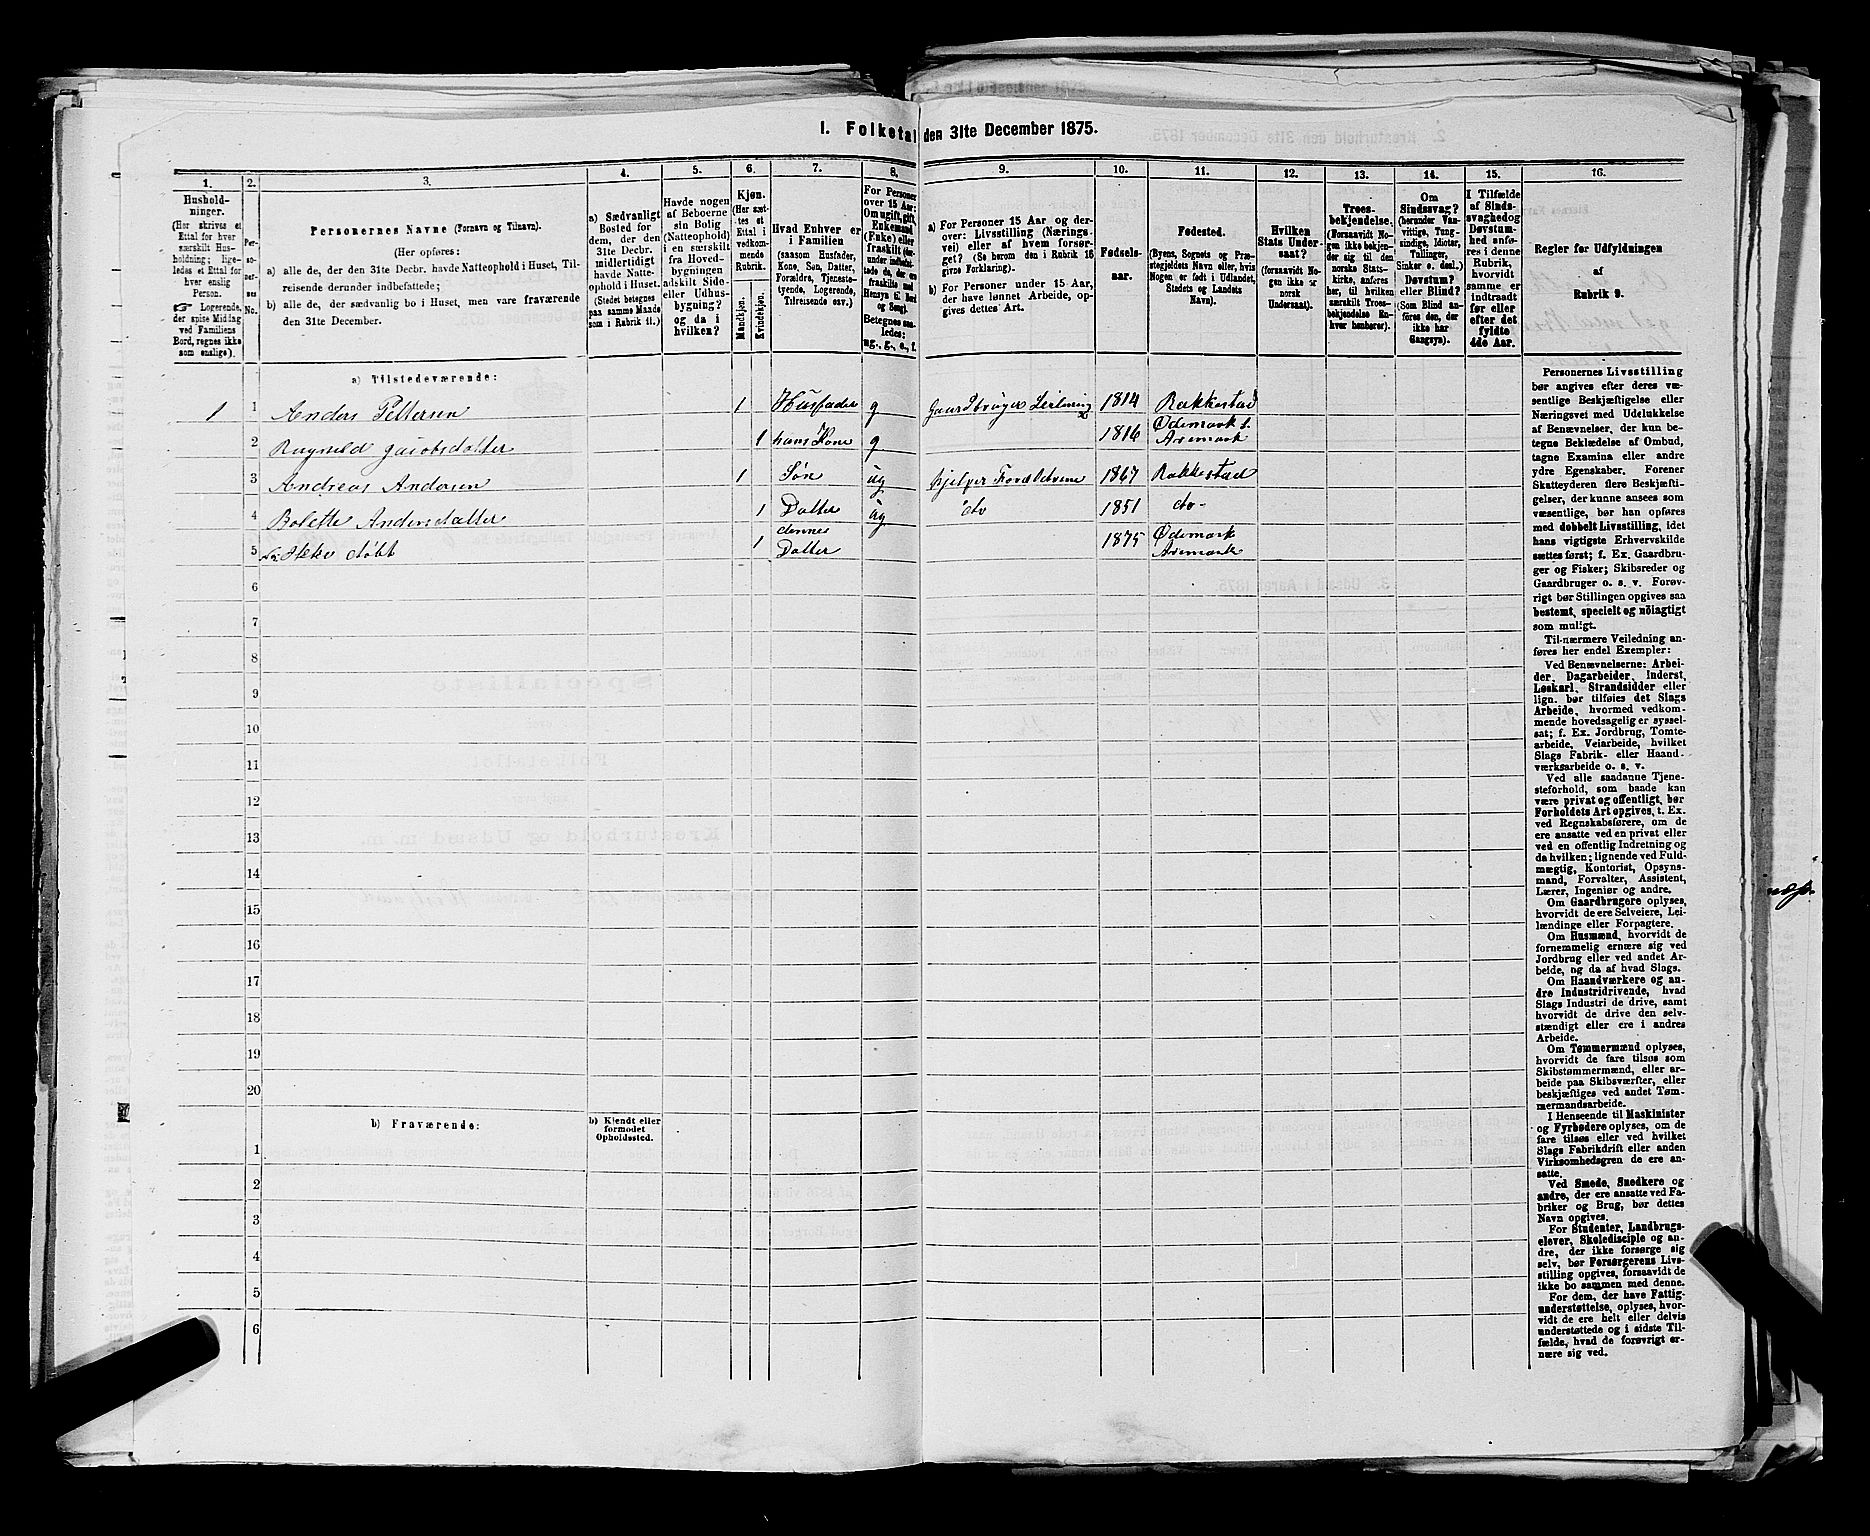 I. Folketal den 31te December 1875.
1. 2. 3. 4. 5. 6. 7. 8. 9. 10. 11. 12. 13. 14. 15. 16.
Hushold-
ninger.
(Her skrives et
Ettal for hver
særskilt Hus-
holdning; lige-
ledes et Ettal for
hver enslig
Person.
☞ Logerende,
der spise Middag
ved Familiens
Bord, regnes ikke
som enslige).
Per-
so-
ner-
nes
No.
Personernes Navne (Fornavn og Tilnavn).
(Her opføres:
a) alle de, der den 31te Decbr. havde Natteophold i Huset, Til-
reisende derunder indbefattede;
b) alle de, der sædvanlig bo i Huset, men vare fraværende
den 31te December.
a) Sædvanligt
Bosted for
dem, der den
31te Decbr.
midlertidigt
havde Natte-
ophold i Huset.
(Stedet betegnes
paa samme Maade
som i Rubrik 11.)
Havde nogen
af Beboerne
sin Bolig
(Natteophold)
i en særskilt
fra Hoved-
bygningen
adskilt Side-
eller Udhus-
bygning?
og da i
hvilken?
Kjøn.
(Her sæt-
tes et
Ettal i
vedkom-
mende
Rubrik.
Mandkjøn.
Kvindekjøn.
Hvad Enhver er
i Familien
(saasom Husfader,
Kone, Søn, Datter,
Forældre, Tjeneste-
tyende, Logerende,
Tilreisende osv.)
For Personer
over 15 Aar:
Om ugift, gift,
Enkemand
(Enke) eller
fraskilt
Betegnes saa-
ledes:
ug., g., e., f.
a) For Personer 15 Aar og der-
over: Livsstilling (Nærings-
vei) eller af hvem forsør-
get? (Se herom den i Rubrik 16
givne Forklaring).
b) For Personer under 15 Aar,
der have lønnet Arbeide, op-
gives dettes Art.
Fødsels-
aar.
Fødested.
(Byens, Sognets og Præ-
stegjeldets Navn eller, hvis
Nogen er født i Udlandet,
Stedets og Landets
Navn).
Hvilken
Stats Under-
saat?
(forsaavidt No-
gen ikke er
norsk
Undersaat).
Troes-
bekjendelse.
(Forsaavidt No-
gen ikke bekjen-
der sig til den
norske Stats-
kirke, anføres
her, til hvilken
særskilt Troes-
bekjendelse En-
hver henhører).
Om
Sindssvag?
(herunder Van-
vittige, Tung-
sindige, Idioter,
Tallinger,
Sinker o. desl.)
Døvstum?
eller Blind?
(Som Blind an-
føres den, der
ikke har
Gangsyn).
I Tilfælde
af Sinds-
svaghed og
Døvstum-
hed anfø-
res i denne
Rubrik,
hvorvidt
samme er
indtraadt
før eller
efter det
fyldte
4de Aar.
Regler for Udfyldningen
af
Rubrik 9.
a) Tilstedeværende:
1 1 Anders Pettersen 1 Husfader g Gaardbruger Leilænding 1814 Rakkestad
2 Ragnild Jacobsdatter 1 hans Kone g 1816 Ødemark S. Aremark
3 Andreas Andersen 1 Søn ug hjelper Forældrene 1867 Rakkestad
4 Bolette Andersdatter 1 Datter ug do 1851 do-
5 Ikke døbt 1 dennes Datter 1875 Ødemark Aremark
6
7
8
9
10
11
12
13
14
15
16
17
18
19
20
b) Fraværende:
b) Kjendt eller
formodet
Opholdssted.
1
2
3
4
5
6
Personernes Livsstilling
bør angives efter deres væ-
sentlige Beskjæftigelse eller
Næringsvei med Udelukkelse
af Benævnelser, der kun be-
tegne Beklædelse af Ombud,
tagne Examina eller andre
ydre Egenskaber. Forener
Skatteyderen flere Beskjæfti-
gelser, der kunne ansees som
væsentlige, bør han opføres
med dobbelt Livsstilling, idet
hans vigtigste Erhvervskilde
sættes først; f. Ex. Gaardbru-
ger og Fisker; Skibsreder og
Gaardbruger o. s. v. Forøv-
rigt bør Stillingen opgives saa
bestemt, specielt og nöiagtigt
som muligt.
Til nærmere Veiledning an-
føres her endel Exempler:
Ved Benævnelserne: Arbei-
der, Dagarbeider, Inderst,
Løskarl, Strandsidder eller
lign. bør tilføies det Slags
Arbeide, hvormed vedkom-
mende hovedsagelig er syssel-
sat; f. Ex. Jordbrug, Tomte-
arbeide, Veiarbeide, hvilket
Slags Fabrik- eller Haand-
værksarbeide o. s. v.
Ved alle saadanne Tjene-
steforhold, som baade kan
være privat og offentligt, bør
Forholdets Art opgives, t. Ex.
ved Regnskabsførere, om de
ere ansatte ved en privat eller
ved en offentlig Indretning og
da hvilken; lignende ved Fuld-
mægtig, Kontorist, Opsyns-
mand, Forvalter, Assistent,
Lærer, Ingeniør og andre.
Om Gaardbrugere oplyses,
hvorvidt de ere Selveiere, Lei-
lændinge eller Forpagtere.
Om Husmænd, hvorvidt de
fornemmelig ernære sig ved
Jordbrug eller ved andet Ar-
beide, og da af hvad Slags.
Om Haandværkere og an-
dre Industridrivende, hvad
Slags Industri de drive, samt
hvorvidt de drive den selv-
stændigt eller ere i andres
Arbeide.
Om Tømmermænd oplyses,
hvorvidt de fare tilsøs som
Skibstømmermænd, eller ar-
beide paa Skibsværfter, eller
beskjæftiges ved andet Tøm-
mermandsarbeide.
I Henseende til Maskinister
og Fyrbødere oplyses, om de
fare tilsøs eller ved hvilket
Slags Fabrikdrift eller anden
Virksomhedsgren de ere an-
satte.
Ved Smede, Snedkere og
andre, der ere ansatte ved Fa-
briker og Brug, bør dettes
Navn opgives.
For Studenter, Landbrugs-
elever, Skoledisciple og an-
dre, der ikke forsørge sig
selv, bør Forsørgerens Livs-
stilling opgives, forsaavidt de
ikke bo sammen med denne.
For dem, der have Fattig-
understøttelse, oplyses, hvor-
vidt de ere helt eller delvis
understøttede og i sidste Til-
fælde, hvad de forøvrigt er-
nære sig ved.